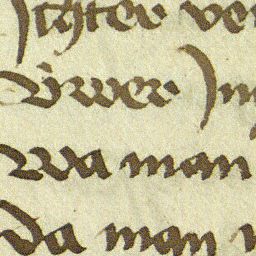 ichter ver
vͦwer
Wa man
da man